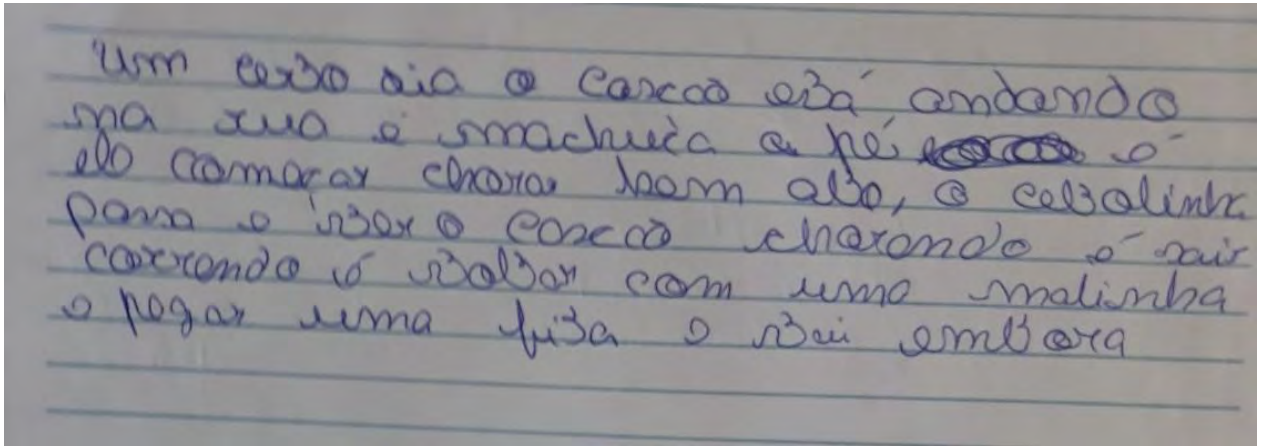 Um certo dia o cascão está andando
na rua e machuca a pé é
ele começar chorar bem alto, o cebolinha
passa e ver o cascão chorando é sair
correndo é voltar com uma malinha
e pegar uma fita e vai embora